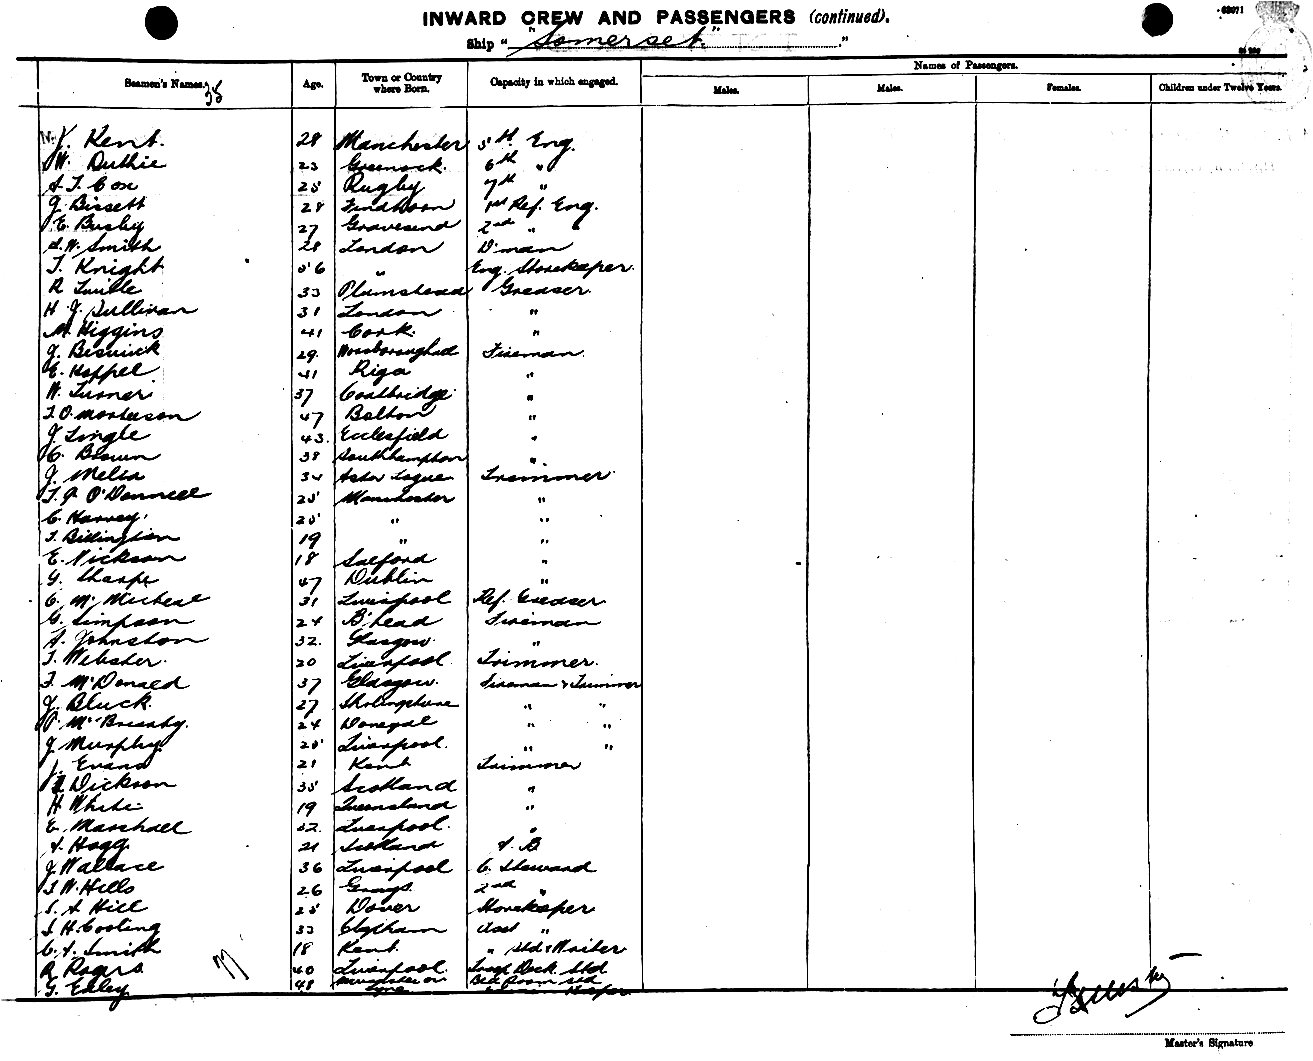 INWARD CREW AND PASSENGERS (continued).
Ship "Somerset."
Seamen's Names. Age. Town or Country where Born. Capacity in which engaged. Names of Passengers.
Males. Males. Females. Children under Twelve Years.
J. Kent. 28 Manchester 5th. Eng.
W. Duthie 23 Greenock. 6th "
A. T. Cox 25 Rugby 7th "
J. Bissett 28 Findhorn 1st Ref. Eng.
E. Busby 27 Gravesend 2nd "
S. W. Smith 28 London D'man
T. Knight 56 " Eng. Storekeeper.
R 33 Plumstead Greaser.
H J. Sullivan 31 London "
M. Higgins 41 Cork. "
J. Beswick 29. Fireman.
E. Hoppel 41 Riga "
W. Turner 37 Coatbridge "
T. O. Mortenson 47 Bolton "
J. Lingle 43. Ecclesfield "
C. Brown 38 Southampton "
J. Melia 34 Trimmer
T. J. O'Donnell 25 Manchester "
C. Harvey. 25 " "
T. Billington 19 " "
E. Nickson 18 Salford "
G. Sharpe 47 Dublin "
C. Mc Micheal 31 Liverpool Ref. Greaser
G. Simpson 24 B'head Fireman
A. Johnston 32. Glasgow. "
T. Webster. 20 Liverpool Trimmer.
T. McDonald 37 Glasgow. Fireman & Trimmer
J. Bluck. 27 " "
P. 24 Donegal " "
J. Murphy. 25 Liverpool. " "
J. Evans 21 Kent Trimmer
Dickson 35 Scotland "
H. White 19 Queensland "
E. Marshall 32. Liverpool. "
A. Hogg. 21 Scotland A. B
J. Wallace 36 Liverpool C. Steward
T. W. Hills 26 Grays. 2nd "
S. A Hill 25 Dover Storekeeper
S. H. Cooling 33 Clapham Asst "
C. A. Smith 18 Kent. " Std & Waiter
R Rogers 40 Liverpool. Deck Std
G. Exley 48 Bed Room Std
Master's Signature